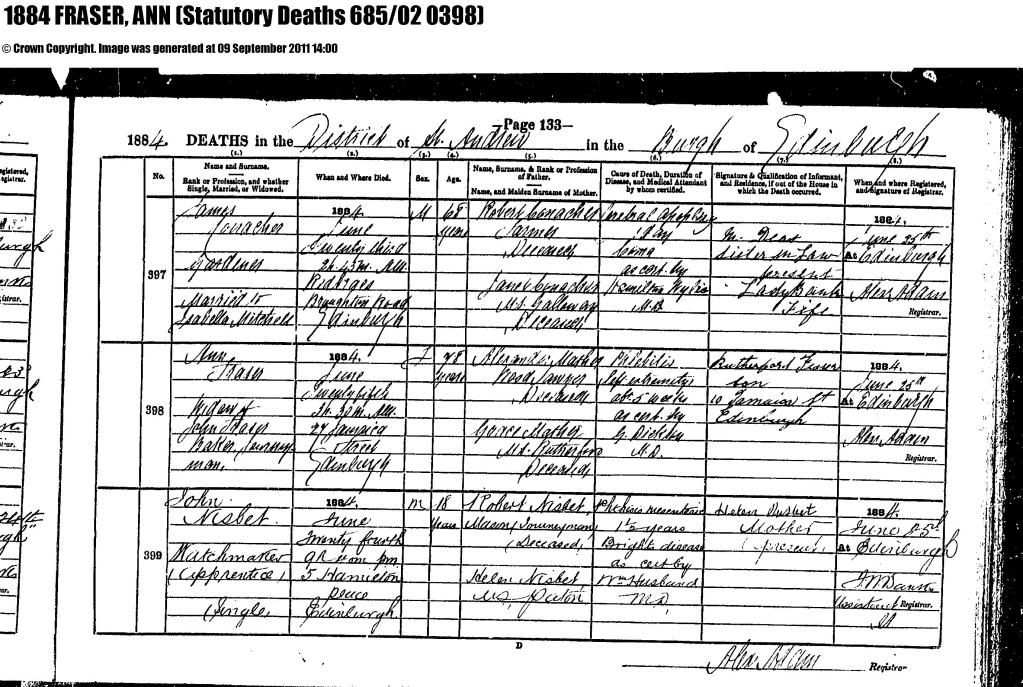 1884 FRASER, ANN (Statutory Deaths 685/02 0398)
© Crown Copyright. Image was generated at 09 September 2011 14:00
Page 133
1884. DEATHS in the District of St. Andrew in the Burgh of Edinburgh
(1.) (2.) (3.) (4.) (5.) (6.) (7.) (8.)
No.
Name and Surname.
Rank or Profession, and whether
Single, Married, or Widowed.
When and Where Died.
Sex.
Age.
Name, Surname, & Rank or Profession
of Father.
Name, and Maiden Surname of Mother.
Cause of Death, Duration of
Disease, and Medical Attendant
by whom certified.
Signature & Qualification of Informant,
and Residence, if out of the House in
which the Death occurred.
When and where Registered,
and Signature of Registrar.
397
James
Conacher
Gardener
Married to
Isabella Mitchell
1884.
June
Twenty third
2h. 45m. A.M.
Redbraes
Broughton Road
Edinburgh
M
68
years
Robert Conacher
Farmer
Deceased
Janet Conacher
M.S. Galloway
Deceased
Cerebral Apoplexy
1 day
Coma
as cert. by
M.D.
M. Deas
Sister in Law
present
Ladybank
Fife
1884.
June 25th
At Edinburgh
Alex Adam
Registrar.
398
Ann
Fraser
Widow of
John Fraser
Baker, Journey-
man.
1884.
June
Twenty fifth
3h. 30m. A.M.
Jamaica
Street
Edinburgh
F
78
years
Alexander Mather
Wood Sawyer
Deceased
Grace Mather
M.S. Rutherford
Deceased
Phlebitis
Left extremity
5 weeks
as cert. by
G. Dickson
M.D.
Rutherford Fraser
Son
10 Jamaica St
Edinburgh
1884.
June 25th
At Edinburgh
Alex Adam
Registrar.
399
John
Nisbet
Watchmaker
(Apprentice)
Single
1884.
June
Twenty fourth
9h. 0m. pm
5 Hamilton
Place
Edinburgh
M
18
Years
Robert Nisbet,
Mason, Journeyman
(Deceased)
Helen Nisbet,
M.S. Paton
Phthisis mesenterica
1½ years
Bright's disease
as cert by
Wm Husband
M.D.
Helen Nisbet
Mother
(present)
1884.
June 25th
At Edinburgh
Assistant Registrar.
D
Alex. Adam Registrar